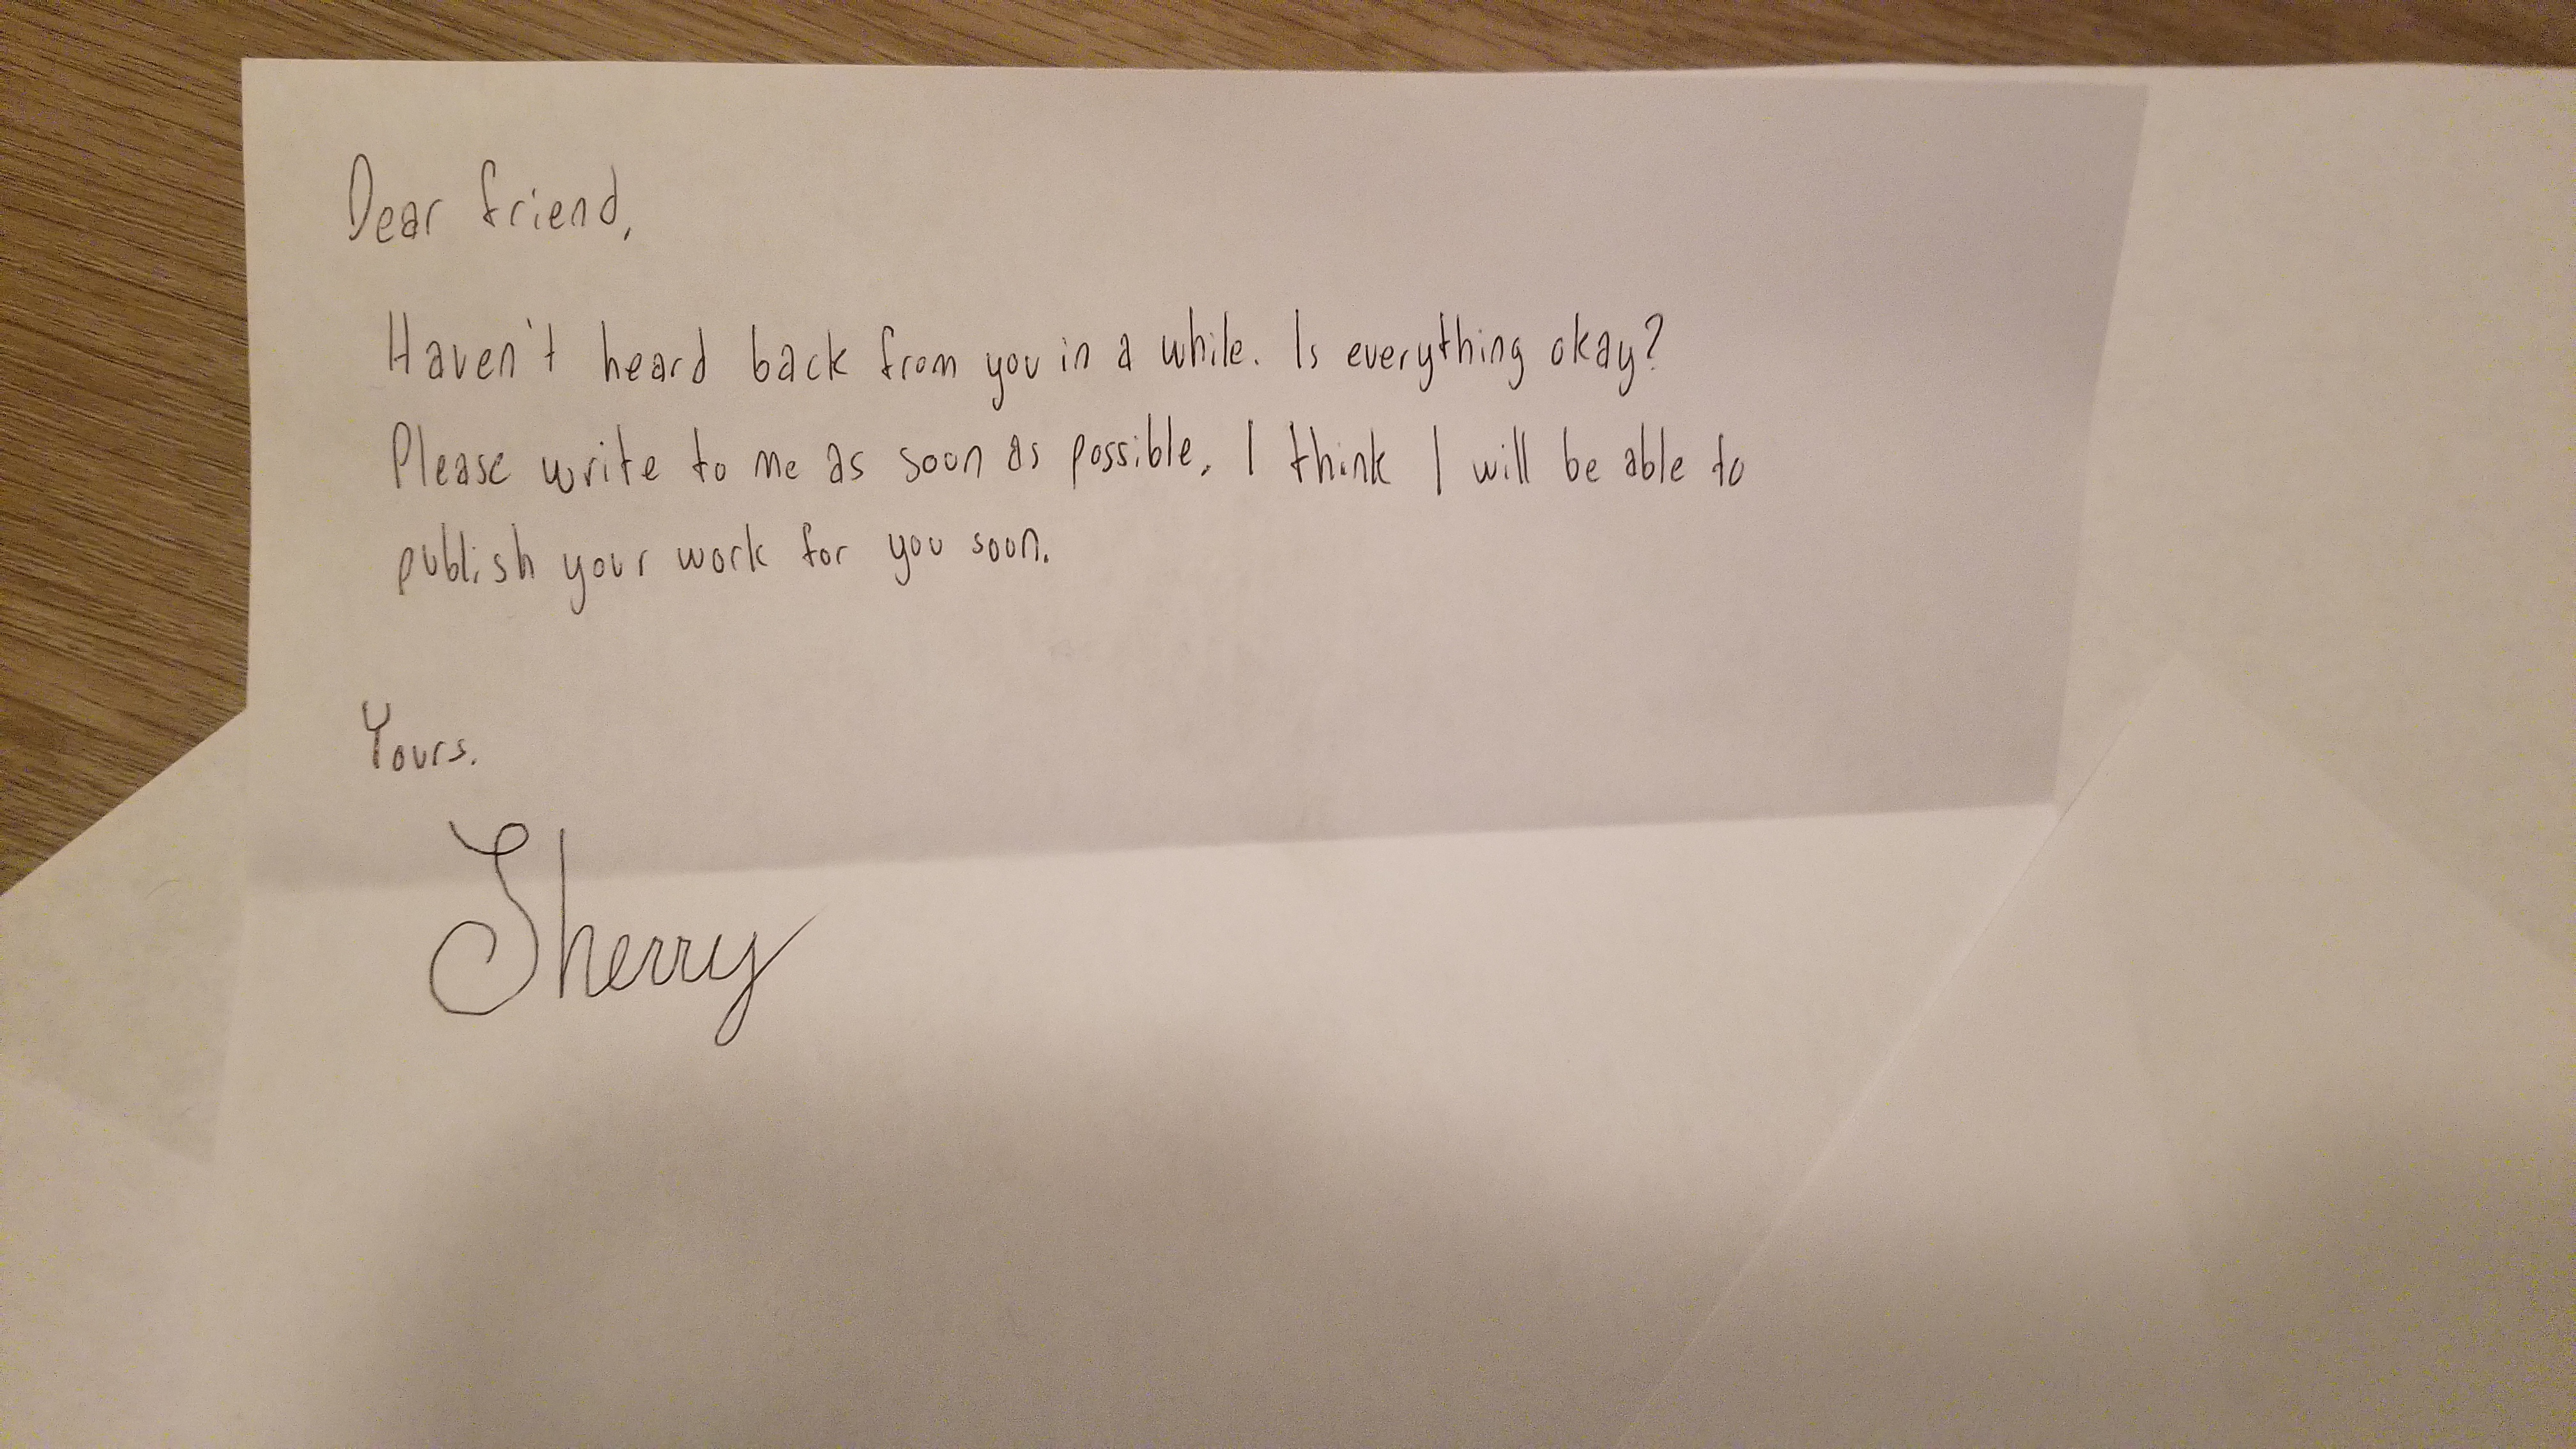 Dear friend,
Haven't heard back from you in a while. Is everything okay?
Please write to me as soon as possible. I think I will be able to
publish your work for you soon.
Yours.
Sherry